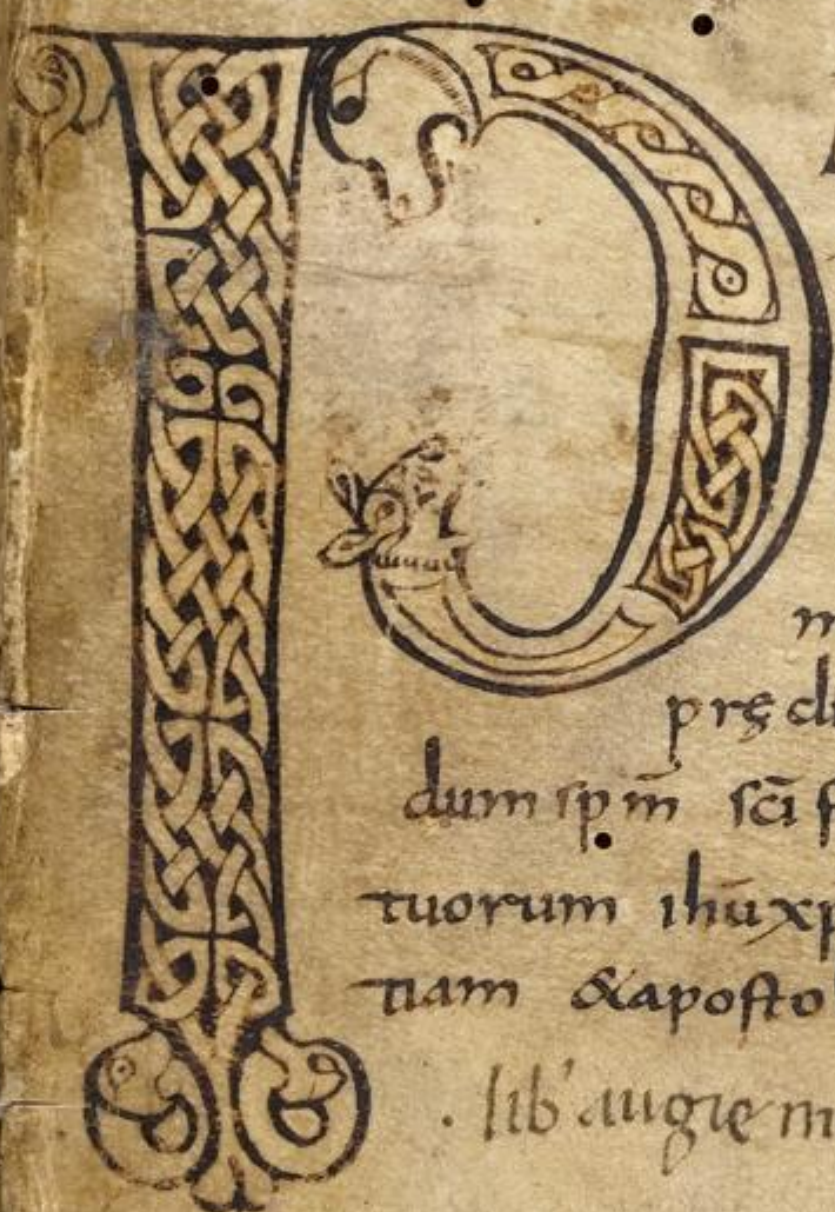 P
m
pręd
dum sp̄m sc̄i s
tuorum ihū xp
tiam &aposto
. lib' augie m